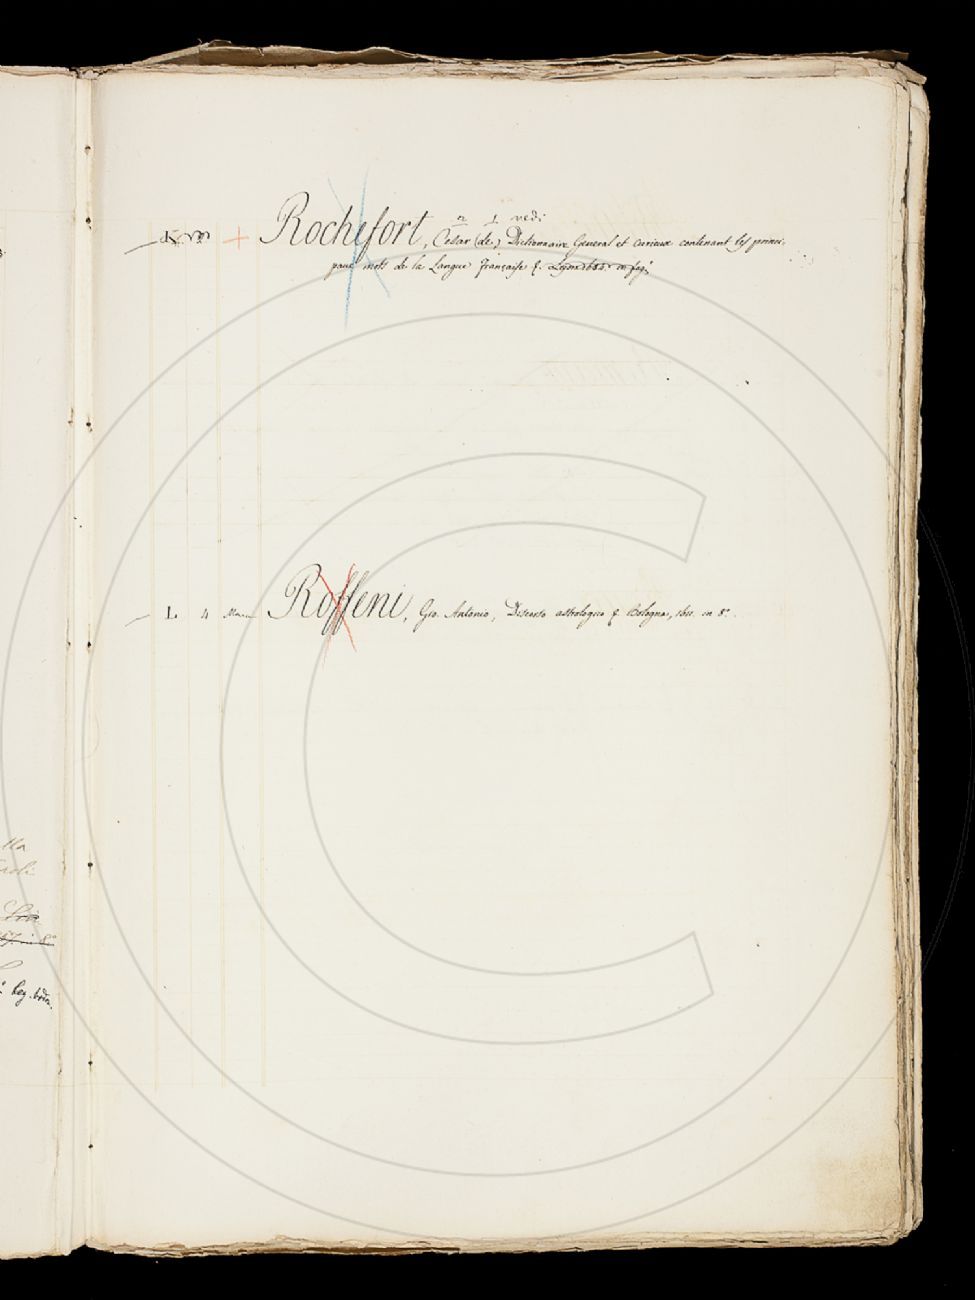 2 1 vedi
Rochefort, Cesar (de,) Dictionnaire General et curieux contenant les princi-
paux mots de la Langue Française &. Lyon 1685. in fog.
L. 4 Roffeni, Gio. Antonio, Discorso astrologico &. Bologna, 1611. in 8.°
lla
leg. bod.